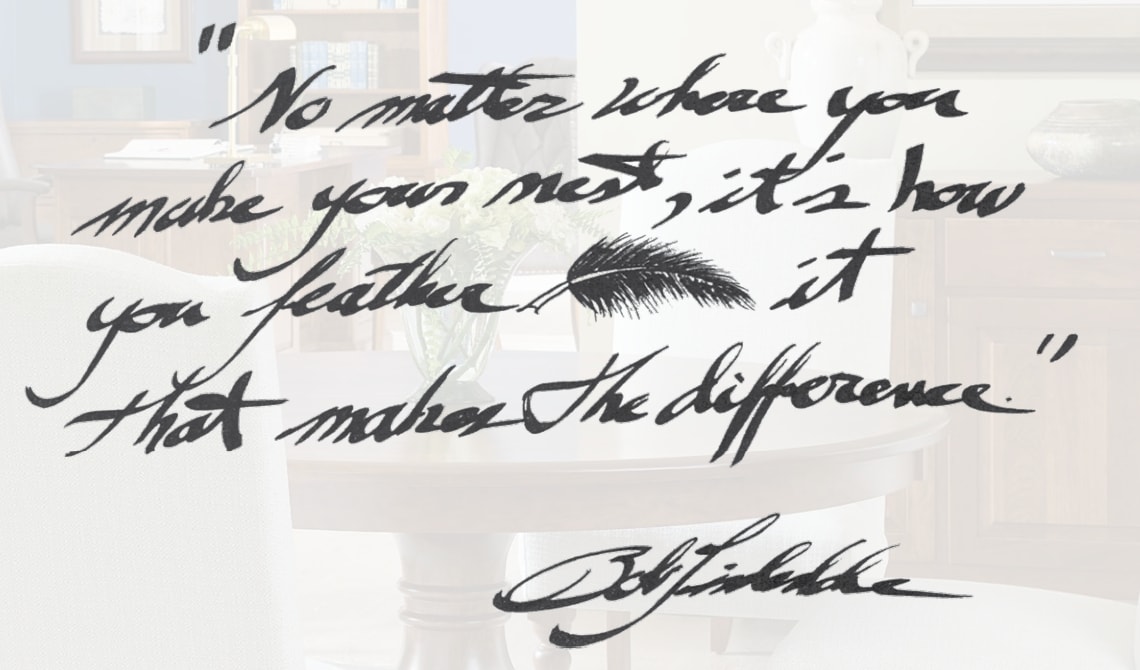 "No matter where you
make your nest, it's how
you feather it
that makes the difference."
Bob